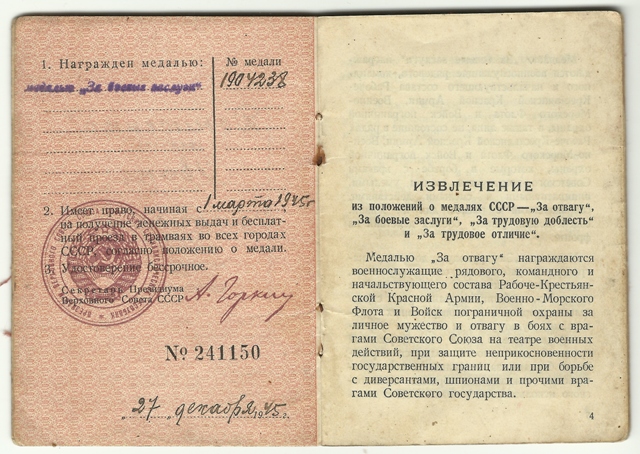 1. Награжден медалью:
№ медали
медалью „За боевые заслуги“
1904238
2. Имеет право, начиная с 1 марта 1945 г
на получение денежных выдач и бесплат-
ный проезд в трамваях во всех городах
СССР, согласно положению о медали.
Удостоверение бессрочное.
Секретарь Президиума
Верховного Совета СССР
А. Горкин
№ 241150
„27“ декабря 1945 г.
ИЗВЛЕЧЕНИЕ
из положений о медалях СССР—„За отвагу“,
„За боевые заслуги“, „За трудовую доблесть“
и „За трудовое отличие“.
Медалью „За отвагу“ награждаются
военнослужащие рядового, командного и
начальствующего состава Рабоче-Крестьян-
ской Красной Армии, Военно-Морского
Флота и Войск пограничной охраны за
личное мужество и отвагу в боях с вра-
гами Советского Союза на театре военных
действий, при защите неприкосновенности
государственных границ или при борьбе
с диверсантами, шпионами и прочими вра-
гами Советского государства.
4